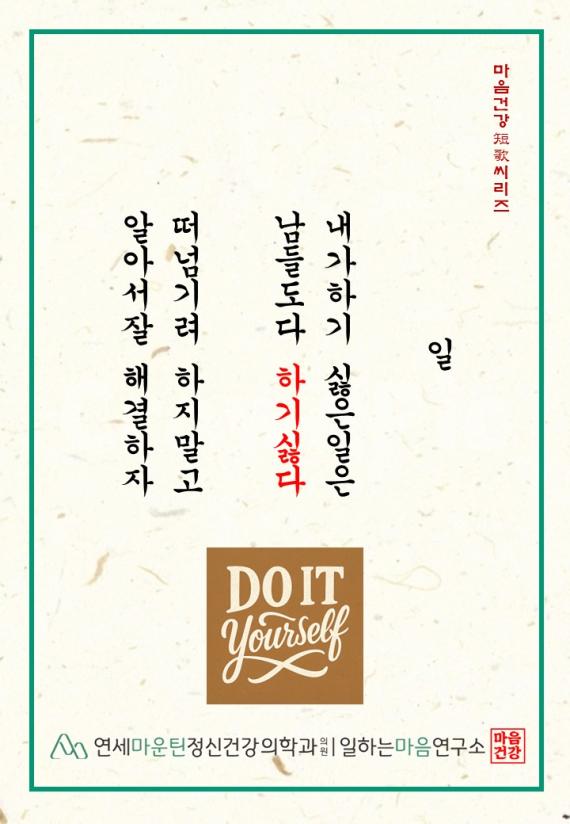 마음건강 短歌 씨리즈
일
내가하기 싫은일은
남들도다 하기싫다
떠넘기려 하지말고
알아서잘 해결하자
DO IT
Yourself
연세마운틴정신건강의학과의원 | 일하는마음연구소
마음
건강